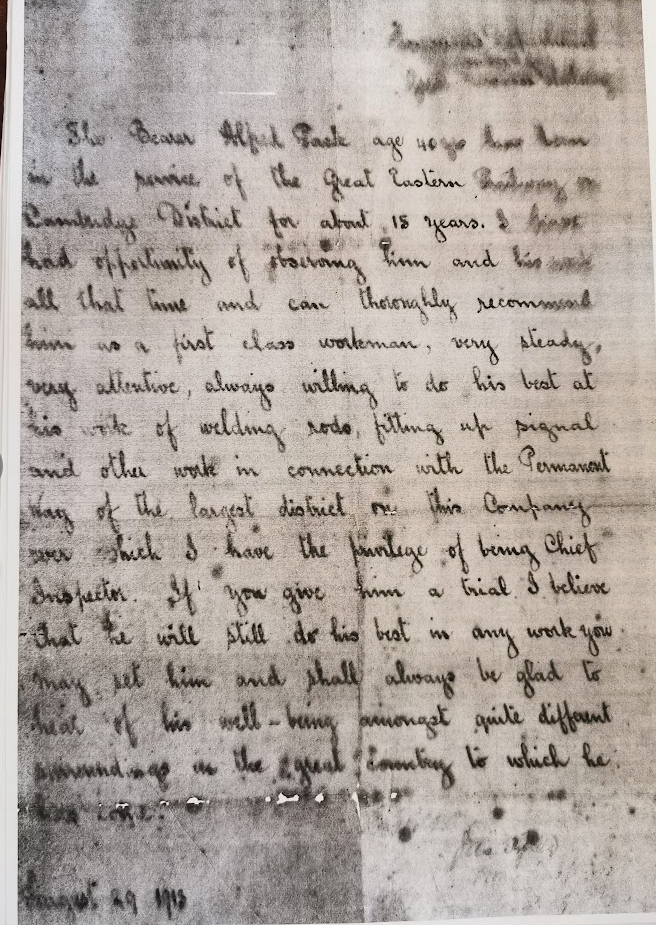 Engineers Department
Great Eastern Railway
The Bearer Alfred age 40 has been
in the service of the Great Eastern Railway on
Cambridge District for about 18 years. I have
had opportunity of observing him and his work
all that time and can thoroughly recommend
him as a first class workman, very steady,
very attentive, always willing to do his best at
his work of welding rods, fitting up signal
and other work in connection with the Permanent
Way of the largest district on this Company
over which I have the privilege of being Chief
Inspector. If you give him a trial I believe
that he will still do his best in any work you
may set him and shall always be glad to
hear of his well-being amongst quite different
surroundings in the great Country to which he
has gone.
August 29 1913